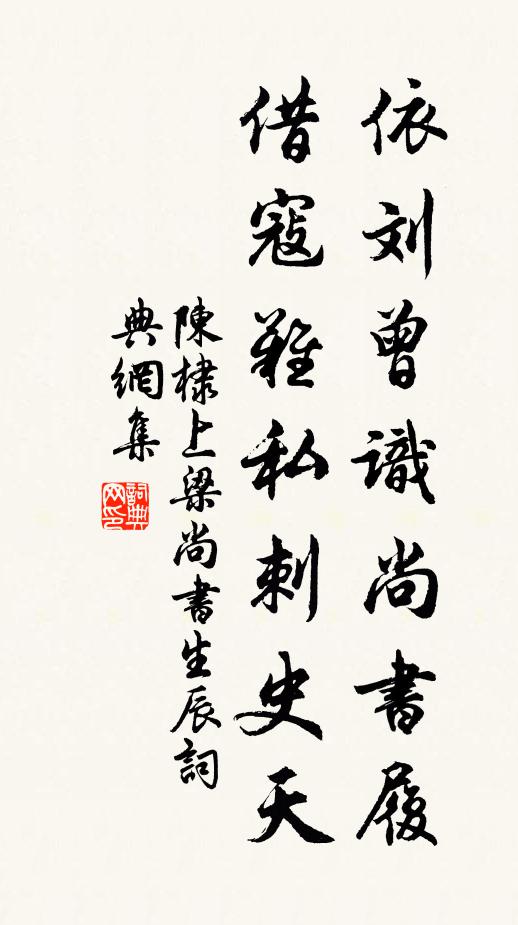 依刘曾識尚書履
借寇難私刺史天
陳棣上梁尚書生辰詞
典網集
詞典網印